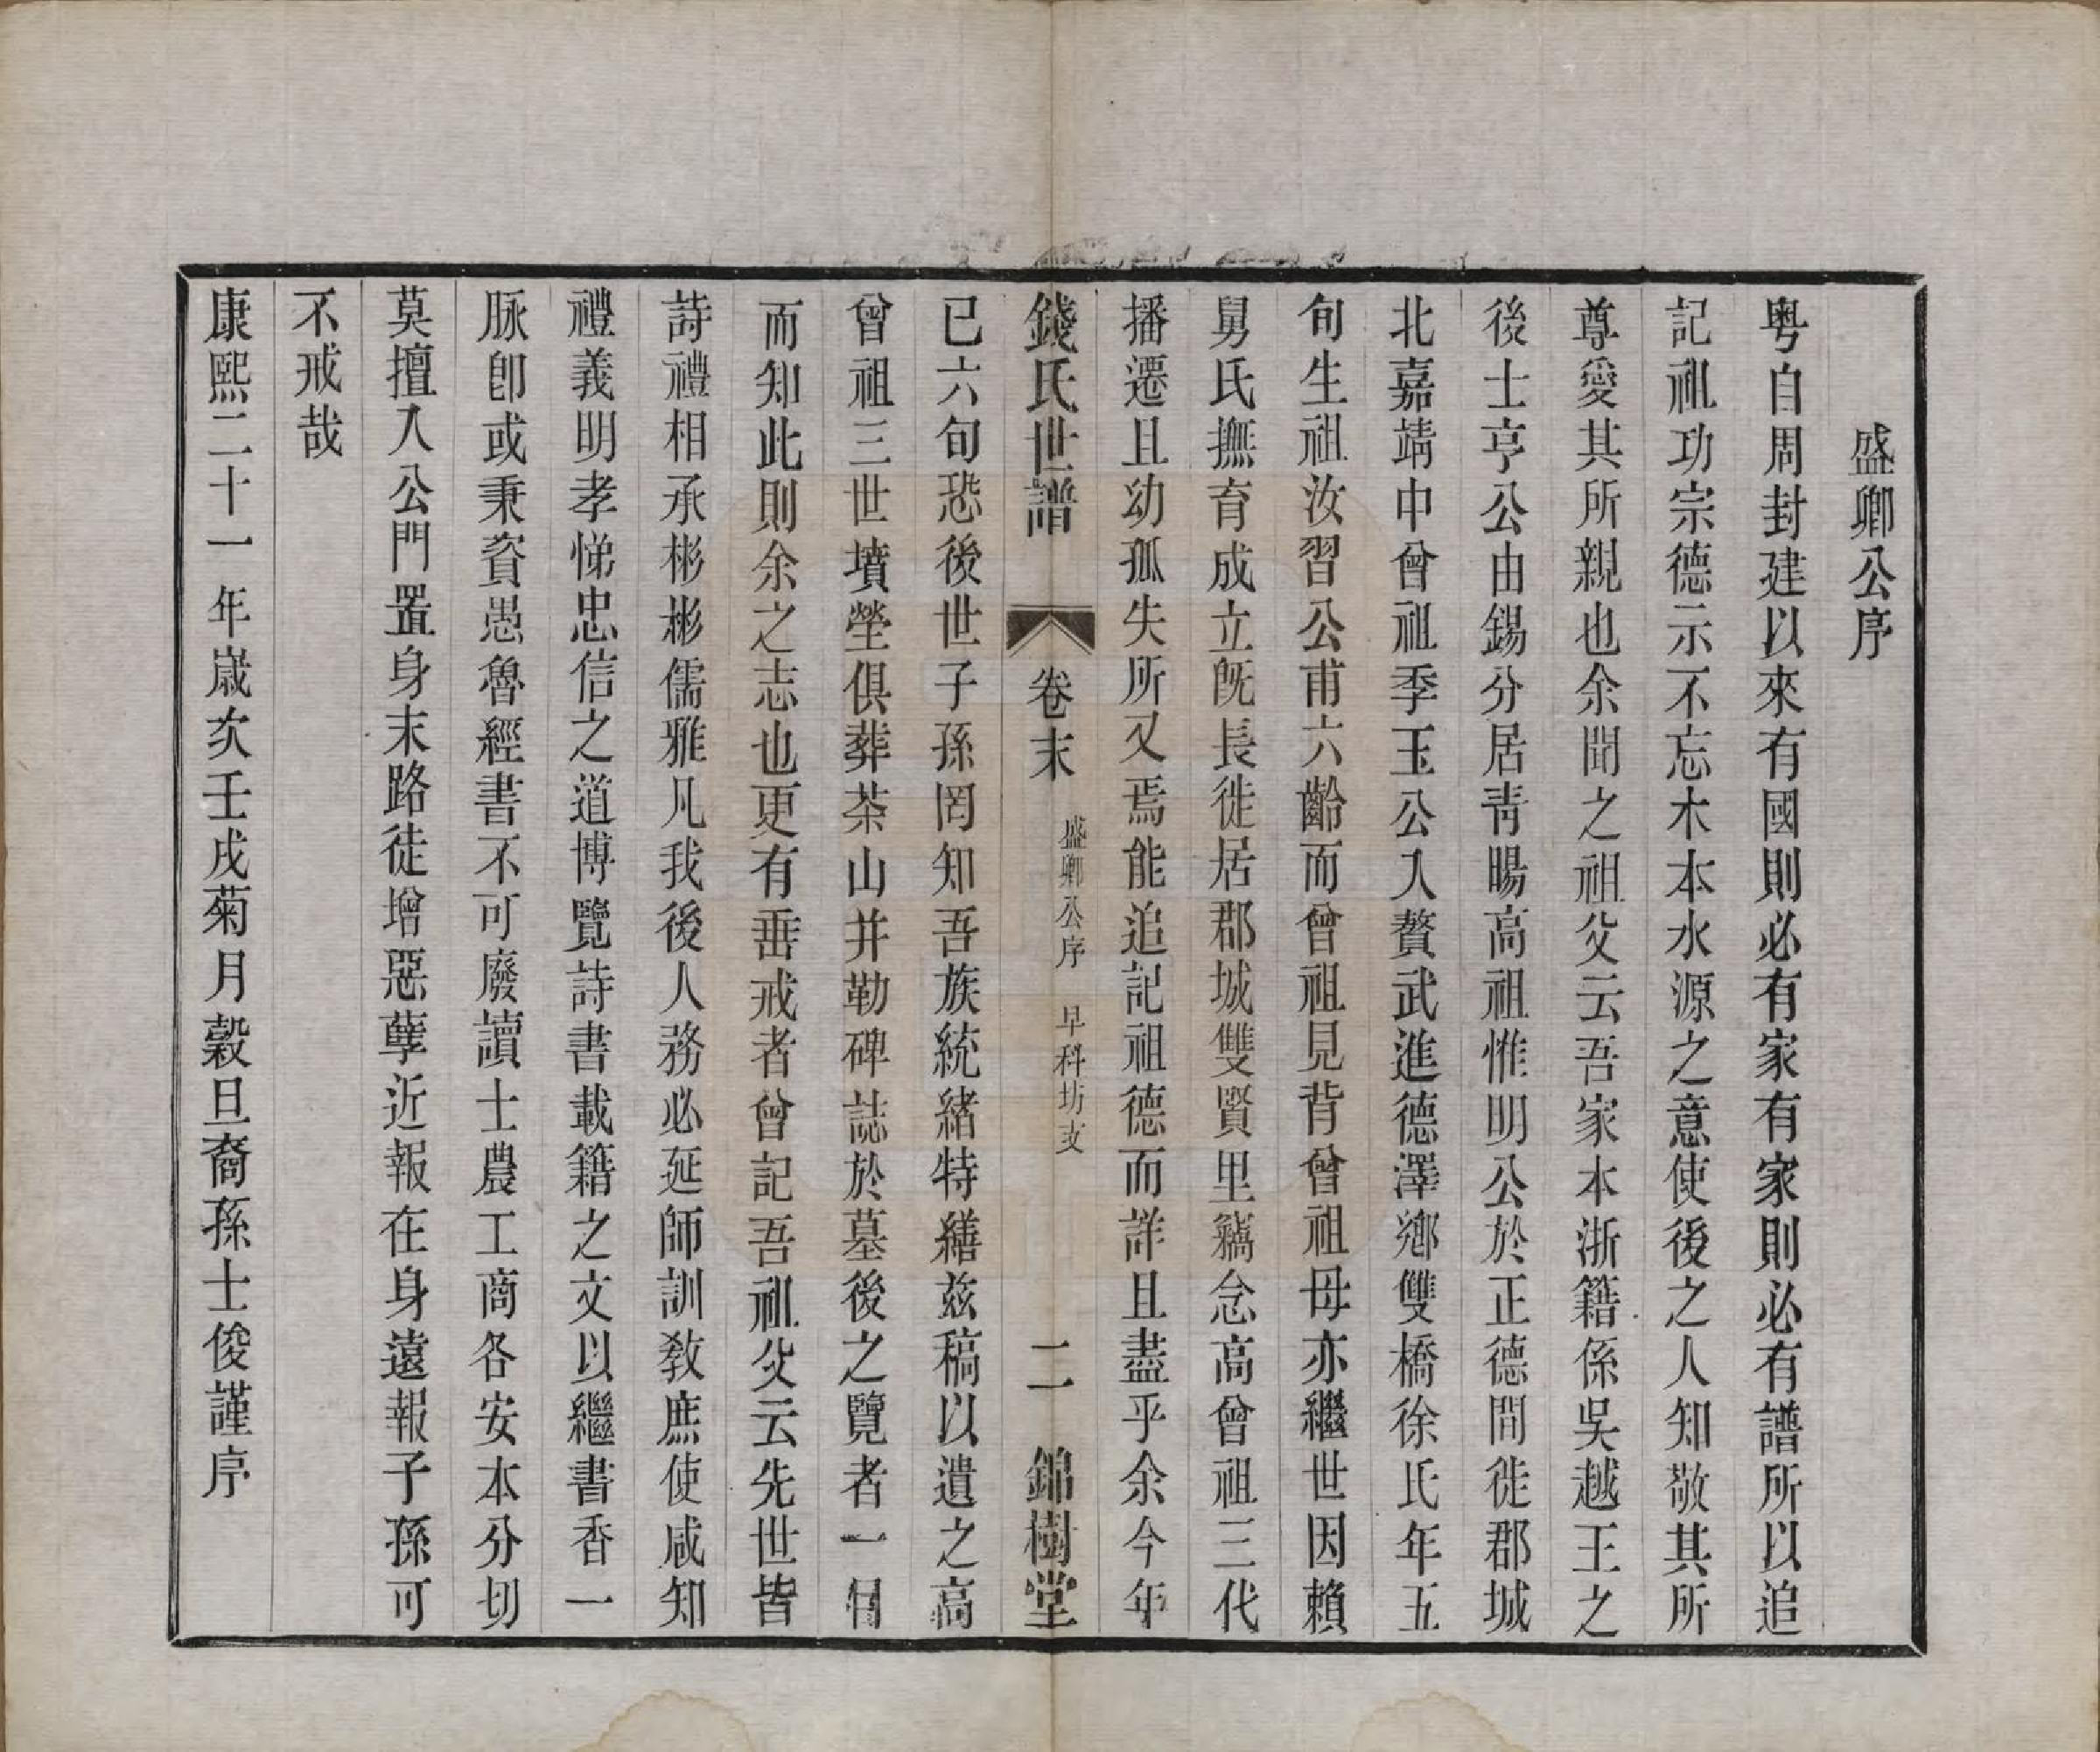 盛卿公序
粵自周封建以來有國則必有家有家則必有譜所以追
記祖功宗德示不忘木本水源之意使後之人知敬其所
尊愛其所親也余聞之祖父云吾家本浙籍係吳越王之
後士亨公由錫分居青暘高祖惟明公於正德間徙郡城
北嘉靖中曾祖季玉公入贅武進德澤鄉雙橋徐氏年五
旬生祖汝習公甫六齡而曾祖見背曾祖母亦繼世因賴
舅氏撫育成立既長徙居郡城雙賢里竊念高曾祖三代
播遷且幼孤失所又焉能追記祖德而詳且盡乎余今年
錢氏世譜 卷末 盛卿公序 早科坊支 二 錦樹堂
已六旬恐後世子孫罔知吾族統緒特繕茲稿以遺之高
曾祖三世墳塋俱葬茶山并勒碑誌於墓後之覽者一目
而知此則余之志也更有垂戒者曾記吾祖父云先世皆
詩禮相承彬彬儒雅凡我後人務必延師訓敎庶使咸知
禮義明孝悌忠信之道博覽詩書載籍之文以繼書香一
脈卽或秉資愚魯經書不可廢讀士農工商各安本分切
莫擅入公門置身末路徒增惡孽近報在身遠報子孫可
不戒哉
康熙二十一年歲次壬戌菊月穀旦裔孫士俊謹序